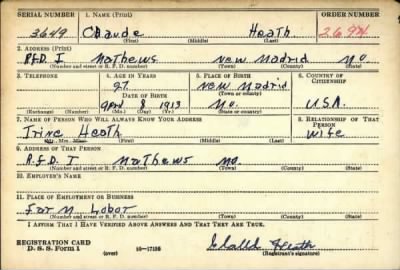 SERIAL NUMBER 1. NAME (Print) ORDER NUMBER
3649 Claude Heath 2694
(First) (Middle) (Last)
2. ADDRESS (Print)
R.F.D. I Mathews New Madrid Mo.
(Number and street or R. F. D. number) (Town) (County) (State)
3. TELEPHONE 4. AGE IN YEARS 5. PLACE OF BIRTH 6. COUNTRY OF CITIZENSHIP
27 New Madrid
DATE OF BIRTH (Town or county)
April 8 1913 Mo. U.S.A.
(Exchange) (Number) (Mo.) (Day) (Yr.) (State or country)
7. NAME OF PERSON WHO WILL ALWAYS KNOW YOUR ADDRESS 8. RELATIONSHIP OF THAT PERSON
Irine Heath Wife
(Mr., Mrs., Miss) (First) (Middle) (Last)
9. ADDRESS OF THAT PERSON
R.F.D I Mathews Mo.
(Number and street or R. F. D. number) (Town) (County) (State)
10. EMPLOYER'S NAME
11. PLACE OF EMPLOYMENT OR BUSINESS
Farm Labor
(Number and street or R. F. D. number) (Town) (County) (State)
I AFFIRM THAT I HAVE VERIFIED ABOVE ANSWERS AND THAT THEY ARE TRUE.
REGISTRATION CARD
D. S. S. Form 1 (over) 16-17105 Heath
(Registrant's signature)